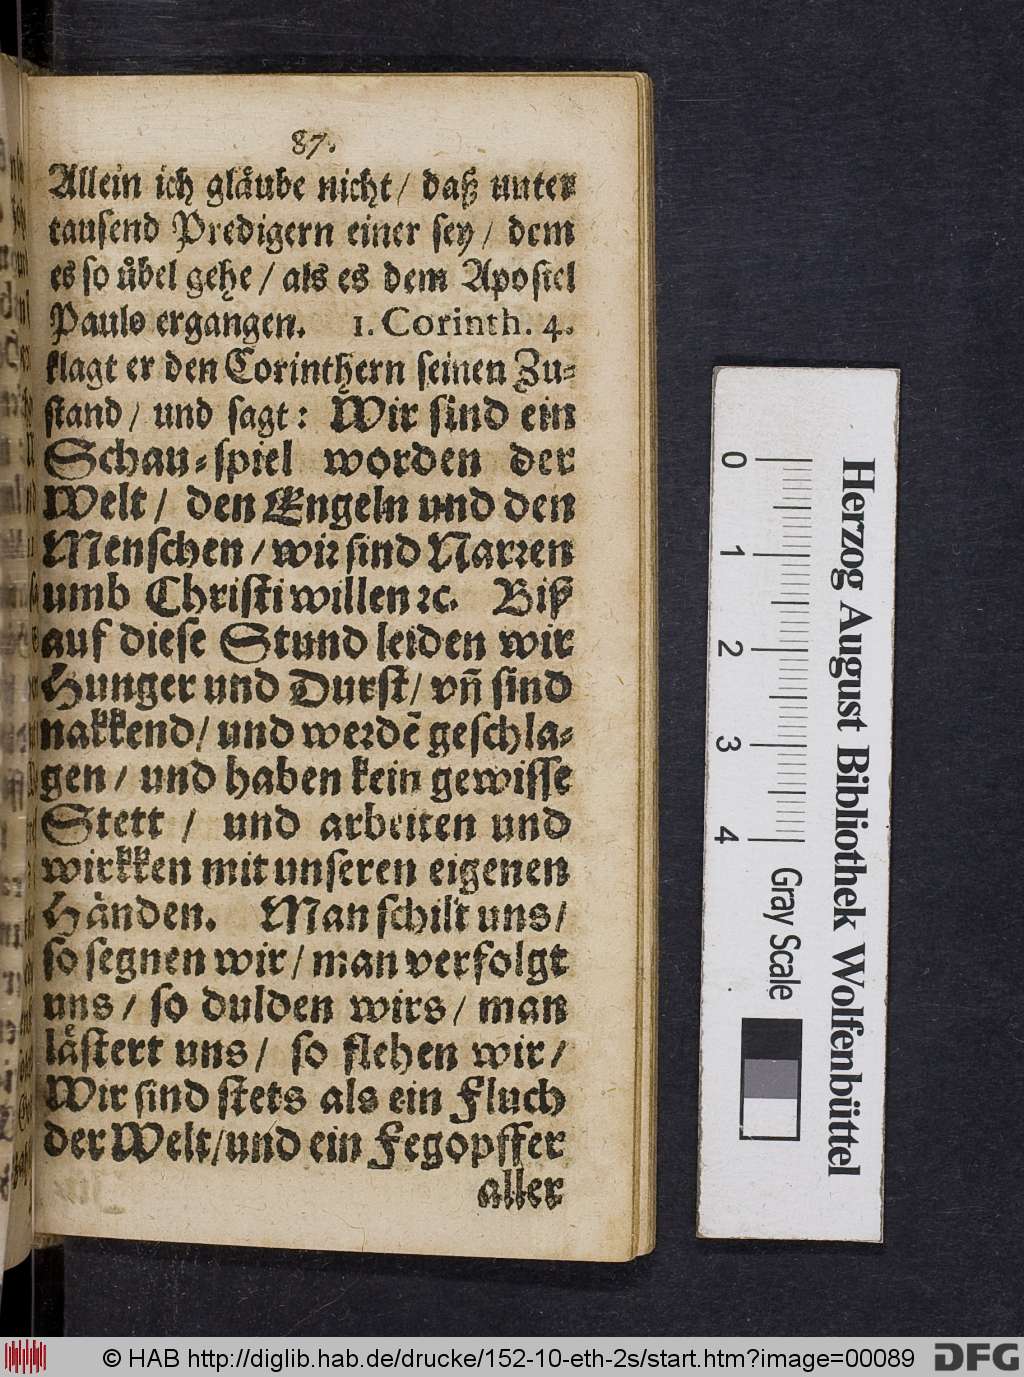 87.
Allein ich glåube nicht/ daß unter
tausend Predigern einer sey/ dem
es so ůbel gehe/ als es dem Apostel
Paulo ergangen. 1. Corinth. 4.
klagt er den Corinthern seinen Zu-
stand/ und sagt: Wir sind ein
Schau-spiel worden der
Welt/ den Engeln und den
Menschen/ wir sind Narren
umb Christi willen ꝛc. Biß
auf diese Stund leiden wir
Hunger und Durst/ vñ sind
nakkend/ und werdē geschla-
gen/ und haben kein gewisse
Stett/ und arbeiten und
wirkken mit unseren eigenen
Händen. Man schilt uns/
so segnen wir/ man verfolgt
uns/ so dulden wirs/ man
låstert uns/ so flehen wir/
Wir sind stets als ein Fluch
der Welt/ und ein Fegopffer
aller
0 1 2 3 4
Gray Scale
Herzog August Bibliothek Wolfenbüttel
© HAB http://diglib.hab.de/drucke/152-10-eth-2s/start.htm?image=00089
DFG